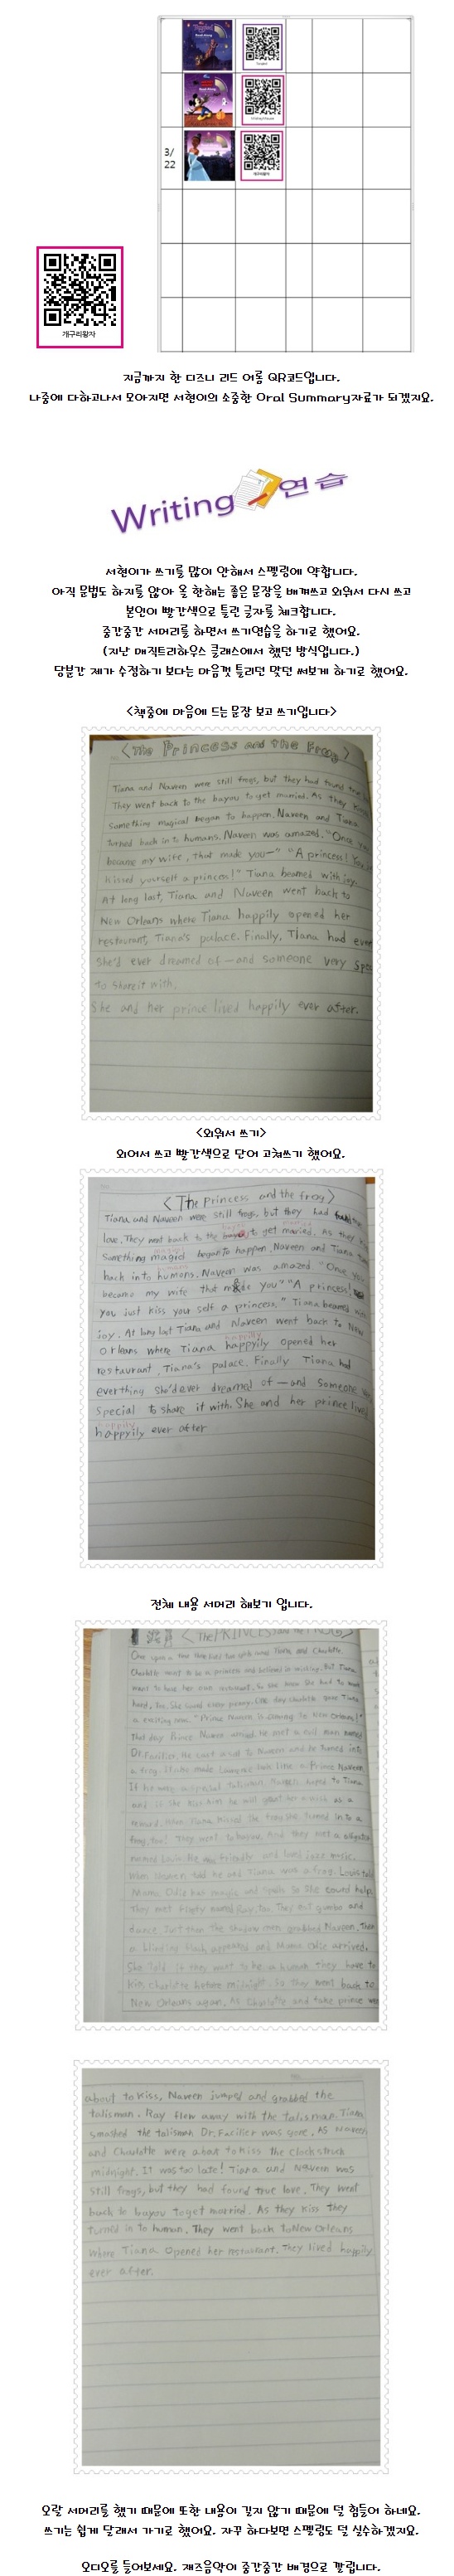 Tangled
Read-Along
Read-Along
3/
22
개구리왕자
개구리왕자
지금까지 한 디즈니 리드 어롱 QR코드입니다.
나중에 다하고나서 모아지면 서현이의 소중한 Oral Summary자료가 되겠지요.
Writing 연습
서현이가 쓰기를 많이 안해서 스펠링에 약합니다.
아직 문법도 하지를 않아 올 한해는 좋은 문장을 배껴쓰고 외워서 다시 쓰고
본인이 빨간색으로 틀린 글자를 체크합니다.
중간중간 서머리를 하면서 쓰기연습을 하기로 했어요.
(지난 매직트리하우스 클래스에서 했던 방식입니다.)
당분간 제가 수정하기 보다는 마음껏 틀리던 맞던 써보게 하기로 했어요.
<책중에 마음에 드는 문장 보고 쓰기입니다>
<The Princess and the Frog>
Tiana and Naveen were still frogs, but they had found true
They went back to the bayou to get married. As they kiss
something magical began to happen. Naveen and Tiana
turned back in to humans. Naveen was amazed. "Once you
became my wife, that made you—" "A princess! You
kissed yourself a princess!" Tiana beamed with joy.
At long last, Tiana and Naveen went back to
New Orleans where Tiana happily opened her
restaurant, Tiana's palace. Finally, Tiana had eve
She'd ever dreamed of — and someone very spe
to share it with.
She and her prince lived happily ever after.
<외워서 쓰기>
외어서 쓰고 빨간색으로 단어 고쳐쓰기 했어요.
<The princess and the frog>
Tiana and Naveen were still frogs, but they had the
love. They went back to the to get married. As they
Something magical began to happen. Naveen and Tiana
back into humans. Naveen was amazed "Once you
became my wife that made you" "A princess!
you just kiss your self a princess." Tiana beamed with
joy. At long last Tiana and Naveen went back to New
Orleans where Tiana happyily opened her
happily
restaurant, Tiana's palace. Finally. Tiana had
everything she'd ever dreamed of — and someone
special to share it with. She and her prince lived
happily
happyily ever after
전체 내용 서머리 해보기 입니다.
Charlotte want to be a princess and believed in wishing. But Tiana
want to have her own restaurant, So she knew she had to work
hard, too. She saved every penny. One day Charlotte gave Tiana
a exciting new. "Prince Naveen is coming to New Orleans!"
That day Prince Naveen he met a evil man named
Dr. Facilier. He cast a spell to Naveen and he turned into
a frog. made Lawrence look like a Prince Naveen.
reward. When Tiana kissed the frog she turned in to a
frog, too! They went to bayou. And they met a alligator
named Louis. He was friendly and loved jazz music.
When Naveen told he and Tiana was a frog. Louis told
Mama Odie has magic and spells so she could help.
They met firefly named Ray, too. They eat gumbo and
dance. Just then the shadow men grabbed Naveen. Then
a blinding flash appeared and Mama Odie arrived.
She told if they want to be a human they have to
kiss Charlotte before midnight. So they went back to
New Orleans again. As Charlotte and fake prince were
about to kiss, Naveen jumped and grabbed the
talisman. Ray flew away with the talisman. Tiana
smashed the talisman Dr. Facilier was gone. AS Naveen
and Charlotte were about to kiss the clock struck
midnight. It was too late! Tiana and Naveen was
still frogs, but they had found true love. They went
back to bayou to get married. As they kiss they
turned in to human. They went back to New Orleans
where Tiana opened her restaurant. They lived happily
ever after.
오랄 서머리를 했기 때문에 또한 내용이 길지 않기 때문에 덜 힘들어 하네요.
쓰기는 쉽게 달래서 가기로 했어요. 자꾸 하다보면 스펠링도 덜 실수하겠지요.
오디오를 들어보세요. 재즈음악이 중간중간 배경으로 깔립니다.